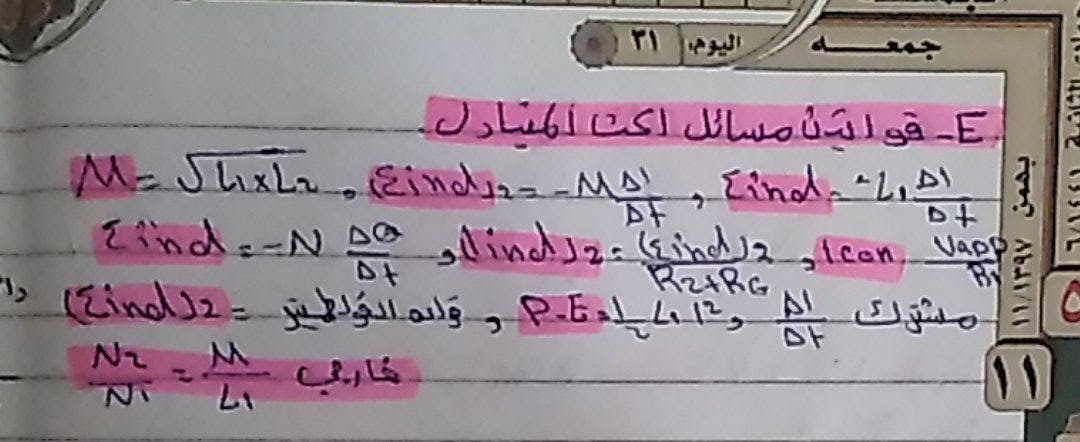 جمعـــه اليوم: ٣١
E- قوانين مسائل الحث المتبادل.
M = √L₁×L₂ , (Ɛind)₂ = -M ΔI/Δt , Ɛind = -L₁ ΔI/Δt
Ɛind = -N ΔΦ/Δt , (Iind)₂ = (Ɛind)₂/R₂+RG , Icon Vapp/R₁
(Ɛind)₂ = , P.E = ½ L₁ I² , ΔI/Δt مشترك
N₂/N₁ = M/L₁ خارجي
بهمن
١١/١٣٩٧
١١